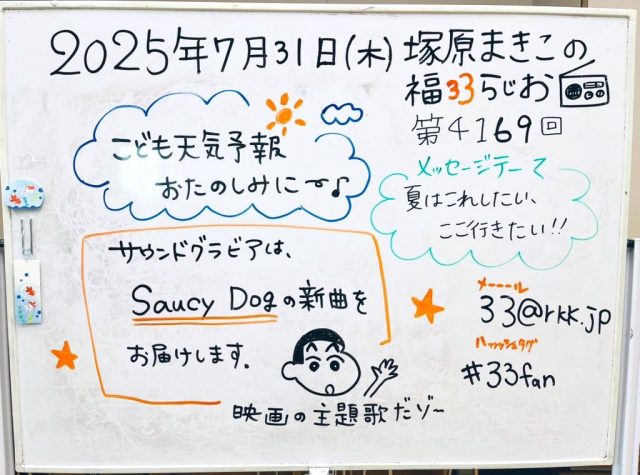 2025年7月31日(木) 塚原まきこの
福33らじお
第4169回
こども天気予報
おたのしみに〜♪
メッセージテーマ
夏はこれしたい、
ここ行きたい!!
サウンドグラビアは、
Saucy Dogの新曲を
お届けします。
映画の主題歌だゾー
メーール
33@rkk.jp
ハッシュタグ
#33fan